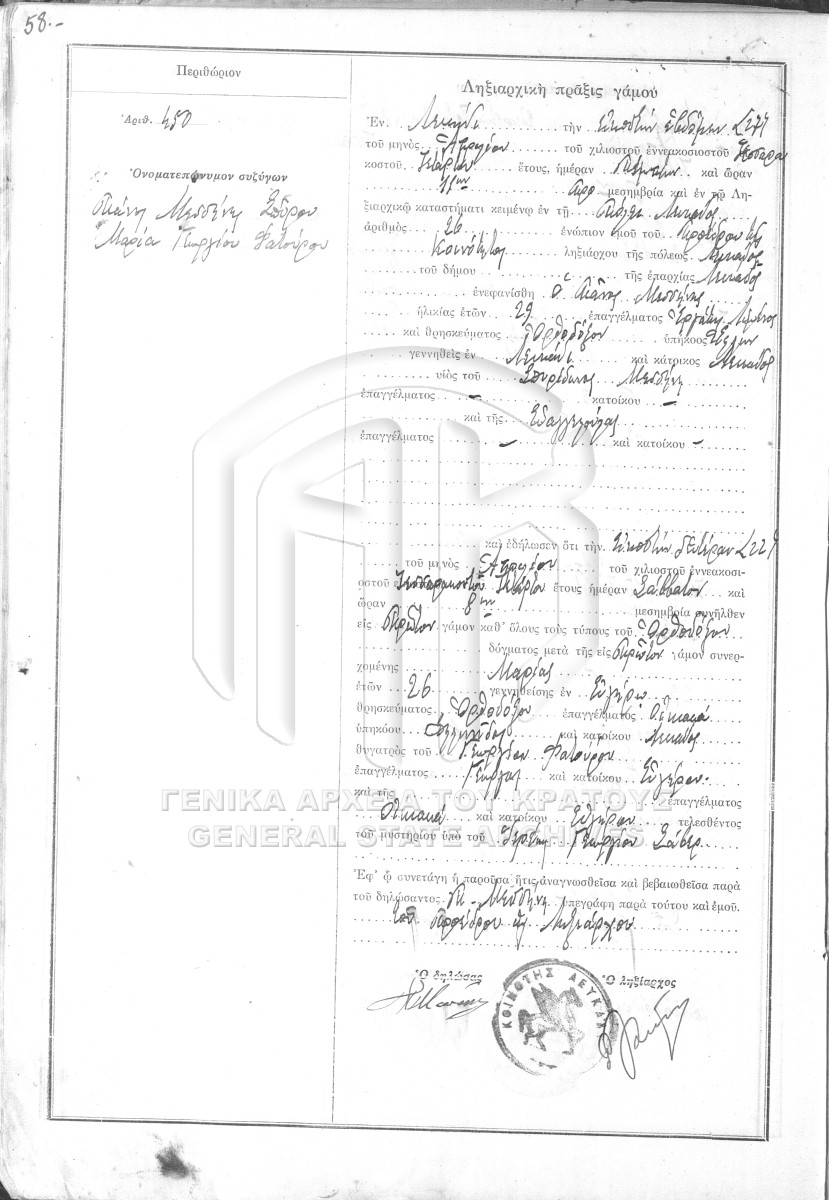 58.-
Περιθώριον
Ἀριθ. 450
Ὀνοματεπώνυμον συζύγων
Μεσσήνης Σπύρου
Μαρία Γεωργίου Φατούρου
Ληξιαρχικὴ πρᾶξις γάμου
Ἐν Λευκάδι τὴν εἰκοστὴν ἑβδόμην (27ην)
τοῦ μηνὸς Ἀπριλίου τοῦ χιλιοστοῦ ἐννεακοσιοστοῦ Τεσσαρα
κοστοῦ ἔτους, ἡμέραν Πέμπτην καὶ ὥραν
11ην π.μ. μεσημβρία καὶ ἐν τῷ Λη-
ξιαρχικῷ καταστήματι κειμένῳ ἐν τῇ Πόλει Λευκάδος
ἀριθμὸς 26 ἐνώπιον ἐμοῦ τοῦ Προέδρου τῆς
Κοινότητος ληξιάρχου τῆς πόλεως Λευκάδος
τοῦ δήμου τῆς ἐπαρχίας Λευκάδος
ἐνεφανίσθη ὁ Μεσσήνης
ἡλικίας ἐτῶν 29 ἐπαγγέλματος Ἐργάτης
καὶ θρησκεύματος Ὀρθοδόξου ὑπήκοος Ἕλλην
γεννηθεὶς ἐν Λευκάδι καὶ κάτοικος Λευκάδος
υἱὸς τοῦ Σπυρίδωνος Μεσσήνη
ἐπαγγέλματος — κατοίκου —
καὶ τῆς Εὐαγγελούλας
ἐπαγγέλματος — καὶ κατοίκου —
καὶ ἐδήλωσεν ὅτι τὴν εἰκοστὴν δευτέραν (22)
τοῦ μηνὸς Ἀπριλίου τοῦ χιλιοστοῦ ἐννεακοσι-
οστοῦ Τεσσαρακοστοῦ ἔτους ἡμέραν Σάββατον καὶ
ὥραν 8ην μεσημβρία συνῆλθεν
εἰς Πρῶτον γάμον καθ᾽ ὅλους τοὺς τύπους τοῦ Ὀρθοδόξου
δόγματος μετὰ τῆς εἰς Πρῶτον γάμον συνερ-
χομένης Μαρίας
ἐτῶν 26 γεννηθείσης ἐν Εὐγήρῳ
θρησκεύματος Ὀρθοδόξου ἐπαγγέλματος Οἰκιακά
ὑπηκόου Ἑλληνίδος καὶ κατοίκου Λευκάδος
θυγατρὸς τοῦ Γεωργίου Φατούρου
ἐπαγγέλματος Γεωργοῦ καὶ κατοίκου Εὐγήρου
καὶ τῆς ἐπαγγέλματος
Οἰκιακά καὶ κατοίκου Εὐγήρου τελεσθέντος
τοῦ μυστηρίου ὑπὸ τοῦ Ἱερέως Γεωργίου
Ἐφ᾽ ᾧ συνετάγη ἡ παροῦσα ἥτις ἀναγνωσθεῖσα καὶ βεβαιωθεῖσα παρὰ
τοῦ δηλώσαντος Μεσσήνη ὑπεγράφη παρὰ τούτου καὶ ἐμοῦ.
τοῦ Προέδρου ὡς Ληξιάρχου
Ὁ δηλώσας Ὁ ληξίαρχος
ΚΟΙΝΟΤΗΣ ΛΕΥΚΑΔ
ΓΕΝΙΚΑ ΑΡΧΕΙΑ ΤΟΥ ΚΡΑΤΟΥΣ
GENERAL STATE ARCHIVES